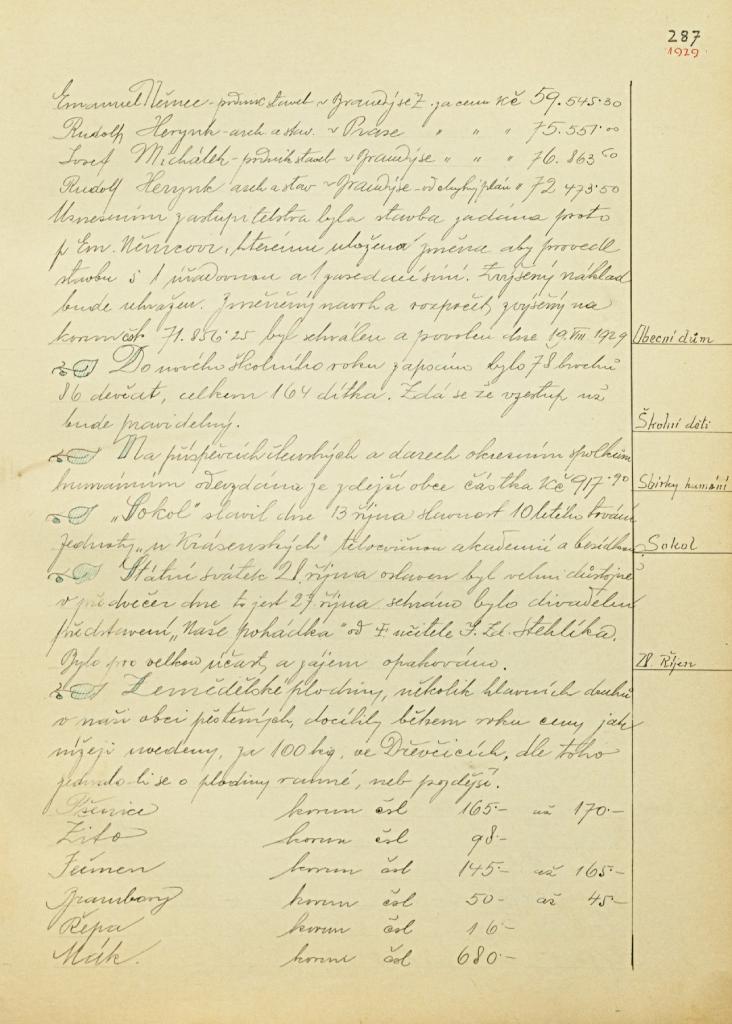 287
1929
Emanuel Němec - podnik. staveb v Brandýse n. L. za cenu Kč 59.545·30
Rudolf Herynk - arch. a stav. v Praze " " " 75.551·00
Josef Michálek - podnik. staveb v Brandýse " " " 76.863·60
Rudolf Herynk arch a stav v Brandýse - od chybný plán " 72.473·50
Usnesením zastupitelstva byla stavba zadána proto
p Em. Němcovi, kterému uložena změna aby provedl
stavbu s 1 úřadovnou a 1 zasedací síní. Zvýšený náklad
bude uhražen. Změněný návrh a rozpočet, zvýšený na
korun čsl. 71.856·25 byl schválen a povolen dne 19. VIII 1929
Obecní dům
Do nového školního roku zapsáno bylo 78 hochů
86 děvčat, celkem 164 dítka. Zdá se že vzestup už
bude pravidelný.
Školní děti
Na příspěvcích členských a darech okresním spolkům
humánním odevzdána je zdejší obce částka Kč 917·90
Sbírky humání
"Sokol" slavil dne 13 října slavnost 10letého trvání
Jednoty "u Krásenských" tělocvičnou akademií a besídkou
Sokol
Státní svátek 28. října oslaven byl velmi důstojně
v předvečer dne to jest 27 října sehráno bylo divadelní
představení "Naše pohádka" od ř. učitele J. Zd. Stehlíka.
Bylo pro velkou účast a zájem opakováno.
28. Říjen
Zemědělské plodiny, několik hlavních druhů
v naší obci pěstěných, docílily během roku ceny jak
nížeji uvedeny, za 100 kg, ve Dřevčicích, dle toho
jednalo-li se o plodiny ranné, neb pozdější.
Pšenice korun čsl 165·- až 170·-
Žito korun čsl 98·-
Ječmen korun čsl 145·- až 165·-
Brambory korun čsl 50·- až 45·-
Řepa korun čsl 16·-
Mák. korun čsl 680·-